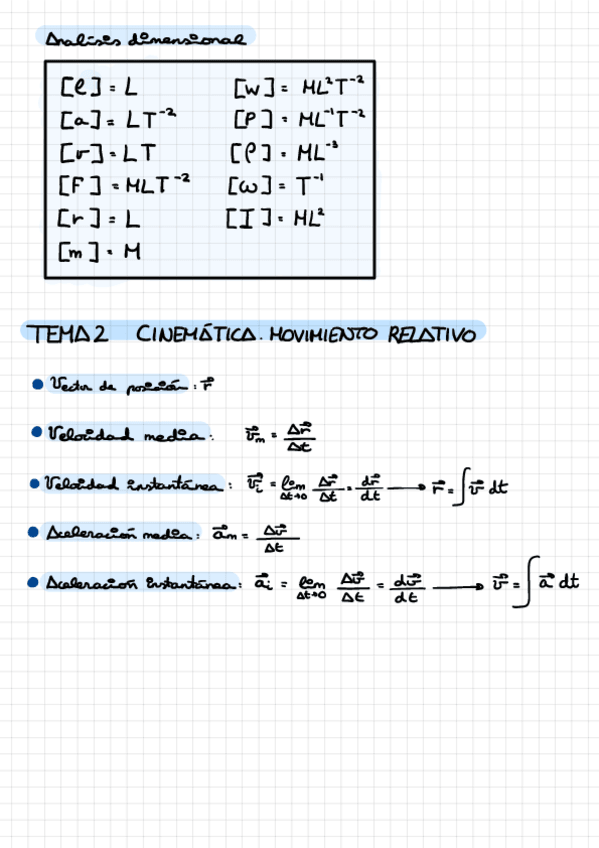 Analisis dimensional
[l] = L
[a] = LT⁻²
[v] = LT
[F] = MLT⁻²
[r] = L
[m] = M
[W] = ML²T⁻²
[P] = ML⁻¹T⁻²
[ρ] = ML⁻³
[ω] = T⁻¹
[I] = ML²
TEMA 2 CINEMÁTICA. MOVIMIENTO RELATIVO
• Vector de posición: r⃗
• Velocidad media: v⃗ₘ = Δr⃗/Δt
• Velocidad instantánea: v⃗ᵢ = lim Δt→0 Δr⃗/Δt = dr⃗/dt → r⃗ = ∫ v⃗ dt
• Aceleración media: a⃗ₘ = Δv⃗/Δt
• Aceleración instantánea: a⃗ᵢ = lim Δt→0 Δv⃗/Δt = dv⃗/dt → v⃗ = ∫ a⃗ dt